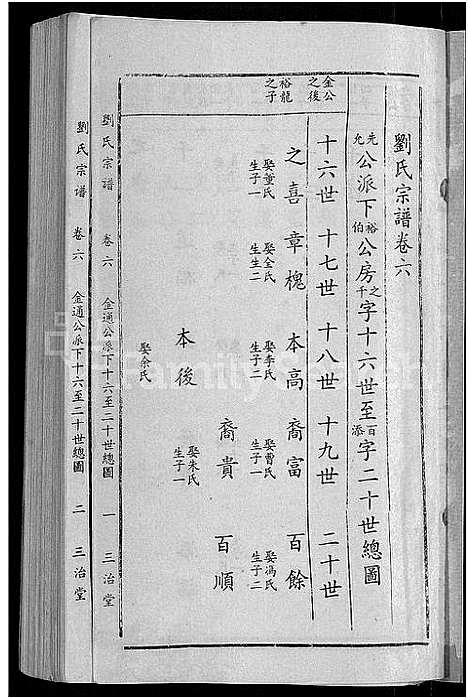 劉氏宗譜卷六
先允公派下裕伯公房之千字十六世至百添字二十世總圖
十六世 十七世 十八世 十九世 二十世
金公之後
裕龍之子
之喜 章槐 本高 裔富 百餘
娶董氏生子一 娶全氏生生二 娶李氏生子二 娶曹氏生子一 娶馮氏生子二
裔貴 百順
本後 娶朱氏生子一
娶余氏
劉氏宗譜 卷六 金通公派下十六至二十世總圖 一 三治堂
劉氏宗譜 卷六 金通公派下十六至二十世總圖 二 三治堂